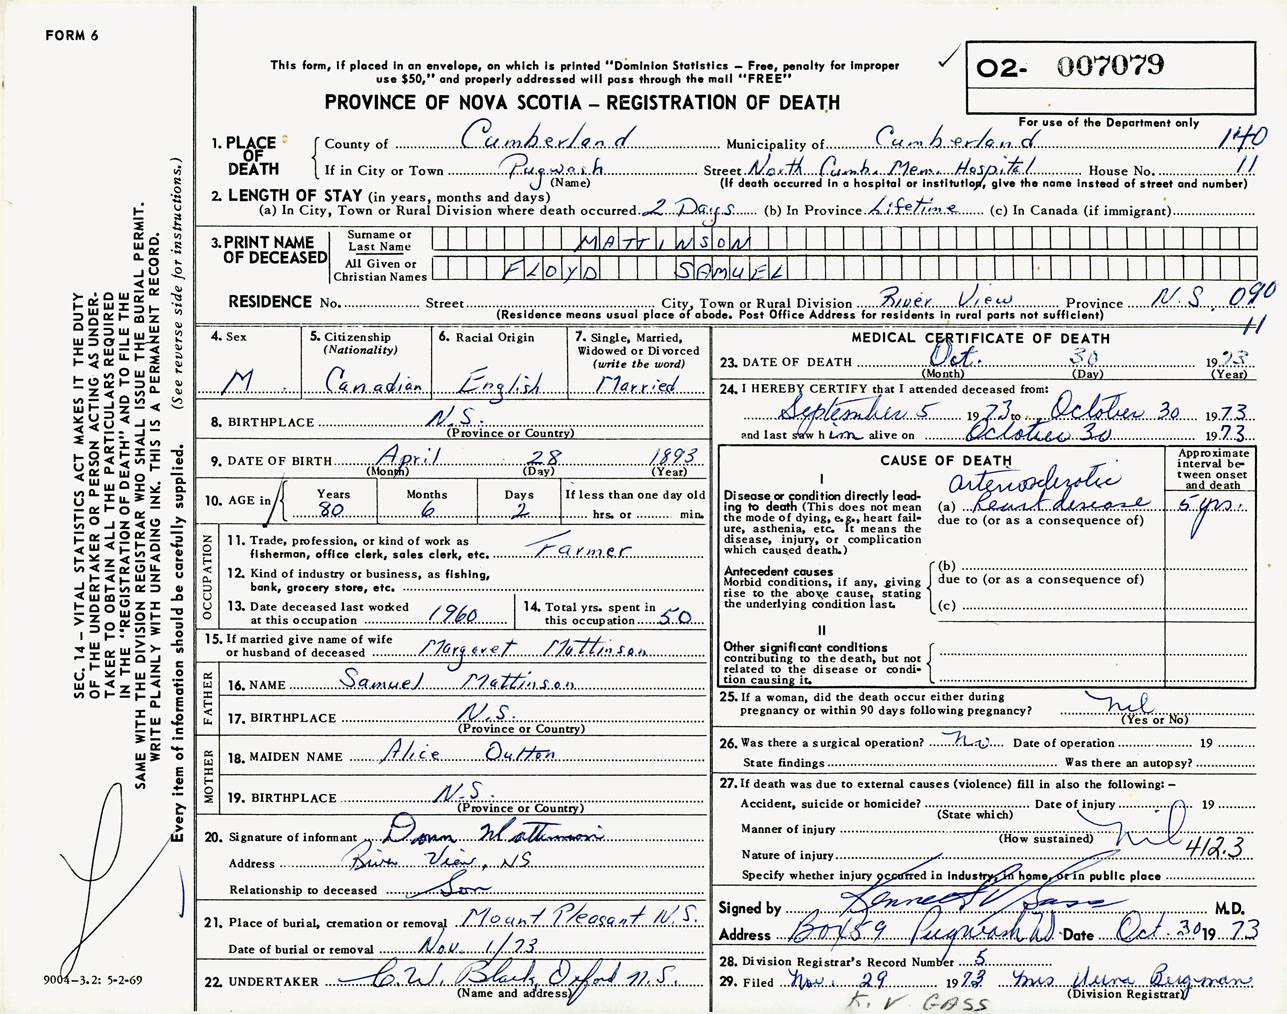 FORM 6
This form, if placed in an envelope, on which is printed "Dominion Statistics – Free, penalty for improper
use $50," and properly addressed will pass through the mail "FREE"
PROVINCE OF NOVA SCOTIA – REGISTRATION OF DEATH
O2- 007079
For use of the Department only
140
11
1. PLACE OF DEATH
County of Cumberland Municipality of Cumberland
If in City or Town Pugwash Street North Cumb. Mem. Hospital House No.
(Name) (If death occurred in a hospital or institution, give the name instead of street and number)
2. LENGTH OF STAY (in years, months and days)
(a) In City, Town or Rural Division where death occurred 2 Days (b) In Province Lifetime (c) In Canada (if immigrant)
3. PRINT NAME OF DECEASED
Surname or Last Name MATTINSON
All Given or Christian Names FLOYD SAMUEL
RESIDENCE No. Street City, Town or Rural Division River View Province N.S. 090
11
(Residence means usual place of abode. Post Office Address for residents in rural parts not sufficient)
4. Sex M
5. Citizenship (Nationality) Canadian
6. Racial Origin English
7. Single, Married, Widowed or Divorced (write the word) Married
8. BIRTHPLACE N.S.
(Province or Country)
9. DATE OF BIRTH April 28 1893
(Month) (Day) (Year)
10. AGE in Years 80 Months 6 Days 2 If less than one day old hrs. or min.
OCCUPATION
11. Trade, profession, or kind of work as
fisherman, office clerk, sales clerk, etc. Farmer
12. Kind of industry or business, as fishing,
bank, grocery store, etc.
13. Date deceased last worked
at this occupation 1960
14. Total yrs. spent in
this occupation 50
15. If married give name of wife
or husband of deceased Margaret Mattinson
FATHER
16. NAME Samuel Mattinson
17. BIRTHPLACE N.S.
(Province or Country)
MOTHER
18. MAIDEN NAME Alice Oulton
19. BIRTHPLACE N.S.
(Province or Country)
20. Signature of informant Mattinson
Address River View, NS
Relationship to deceased Son
21. Place of burial, cremation or removal Mount Pleasant N.S.
Date of burial or removal Nov. 1/73
22. UNDERTAKER C.W. Black, Oxford N.S.
(Name and address)
MEDICAL CERTIFICATE OF DEATH
23. DATE OF DEATH Oct. 30 1973
(Month) (Day) (Year)
24. I HEREBY CERTIFY that I attended deceased from:
September 5 1973 to October 30 1973
and last saw him alive on October 30 1973
CAUSE OF DEATH
Approximate interval between onset and death
I
Disease or condition directly leading to death (This does not mean the mode of dying, e.g., heart failure, asthenia, etc. It means the disease, injury, or complication which caused death.)
(a) arteriosclerotic heart disease 5 yrs.
due to (or as a consequence of)
Antecedent causes
Morbid conditions, if any, giving rise to the above cause, stating the underlying condition last.
(b)
due to (or as a consequence of)
(c)
II
Other significant conditions
contributing to the death, but not related to the disease or condition causing it.
25. If a woman, did the death occur either during
pregnancy or within 90 days following pregnancy? nil
(Yes or No)
26. Was there a surgical operation? no Date of operation 19
State findings Was there an autopsy?
27. If death was due to external causes (violence) fill in also the following: –
Accident, suicide or homicide? Date of injury 19
(State which)
Manner of injury nil
(How sustained)
Nature of injury 412.3
Specify whether injury occurred in industry, in home, or in public place
Signed by Kenneth V Gass M.D.
Address Box 59 Pugwash Date Oct. 30 1973
28. Division Registrar's Record Number 5
29. Filed Nov. 29 1973 Mrs Bergman
(Division Registrar)
K. V. GASS
SEC. 14 – VITAL STATISTICS ACT MAKES IT THE DUTY
OF THE UNDERTAKER OR PERSON ACTING AS UNDER-
TAKER TO OBTAIN ALL THE PARTICULARS REQUIRED
IN THE "REGISTRATION OF DEATH" AND TO FILE THE
SAME WITH THE DIVISION REGISTRAR WHO SHALL ISSUE THE BURIAL PERMIT.
WRITE PLAINLY WITH UNFADING INK. THIS IS A PERMANENT RECORD.
Every item of information should be carefully supplied. (See reverse side for instructions.)
9004-3.2: 5-2-69